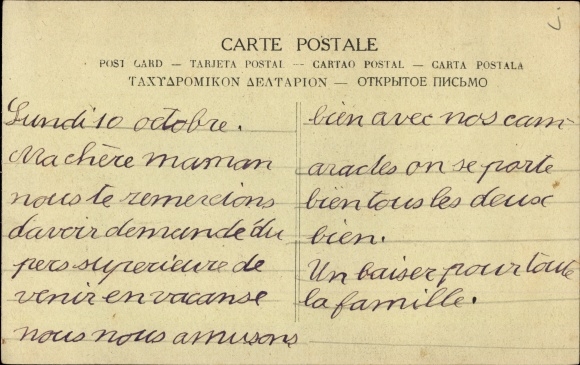 CARTE POSTALE
POST CARD — TARJETA POSTAL — CARTAO POSTAL — CARTA POSTALA
ΤΑΧΥΔΡΟΜΙΚΟΝ ΔΕΛΤΑΡΙΟΝ — ОТКРЫТОЕ ПИСЬМО
Lundi 10 octobre.
Ma chère maman
nous te remercions
davoir demandé du
pers superieure de
venir en vacanse
nous nous amusons
bien avec nos cam
arades on se porte
bien tous les deux
bien.
Un baiser pour toute
la famille.